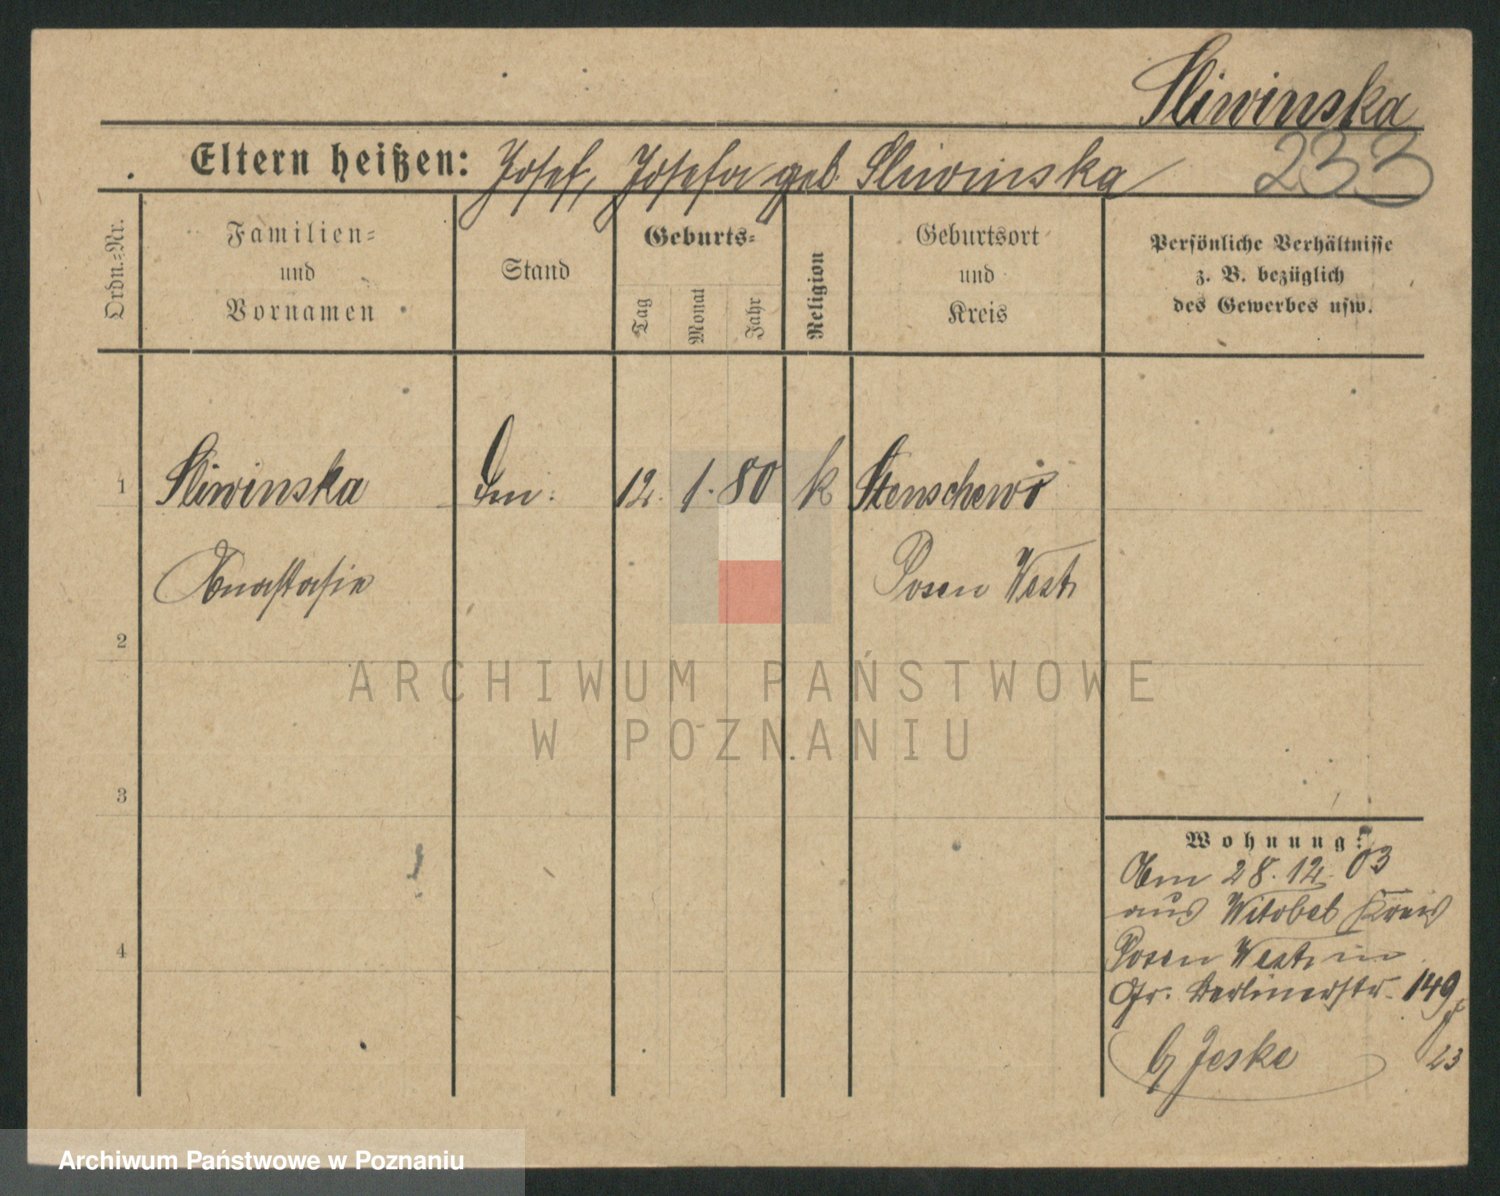 Sliwinska
Eltern heißen: Josef, Josefa geb Sliwinska
233
Ordn.-Nr.
Familien-
und
Vornamen
Stand
Geburts-
Tag
Monat
Jahr
Religion
Geburtsort
und
Kreis
Persönliche Verhältnisse
z. B. bezüglich
des Gewerbes usw.
1 Sliwinska 12. 1. 80 k Stenschewo
Anastasie Posen West
2
ARCHIWUM PAŃSTWOWE
W POZNANIU
3
Wohnung:
Am 28. 12. 03
aus Witobel Kreis
4
Posen West in
Gr. Berlinerstr. 149
b/ Jeske 23
Archiwum Państwowe w Poznaniu